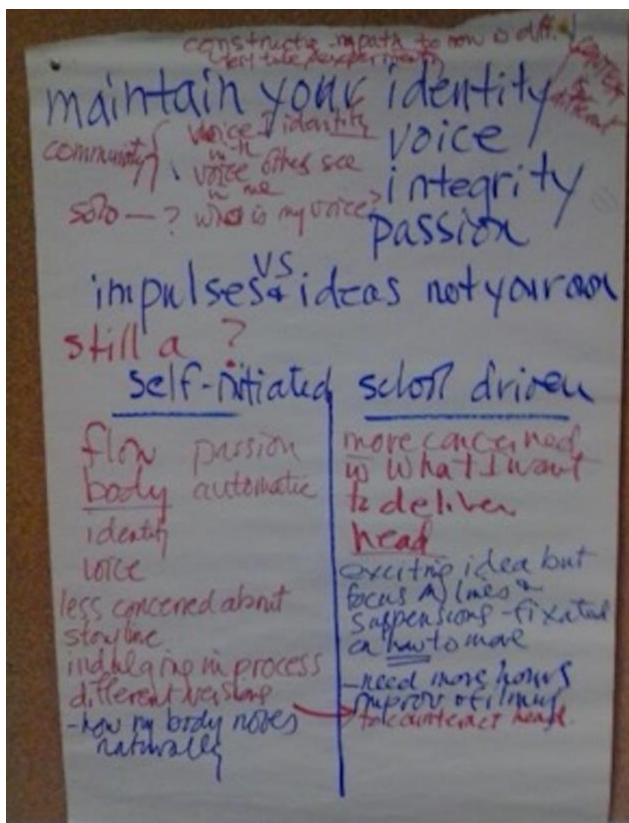 maintain your identity
voice
integrity
passion
community
voice identity
voice others see
in me
solo — ? who is my voice?
vs
impulses & ideas not your own
still a ?
self-initiated
flow passion
body automatic
identity
voice
less concerned about
storyline
indulging in process
different versions
- how my body moves
naturally
school driven
more concerned
w what I want
to deliver
head
exciting idea but
focus on lines &
suspensions - fixated
on how to move
- need more hours
improv
to counteract head.